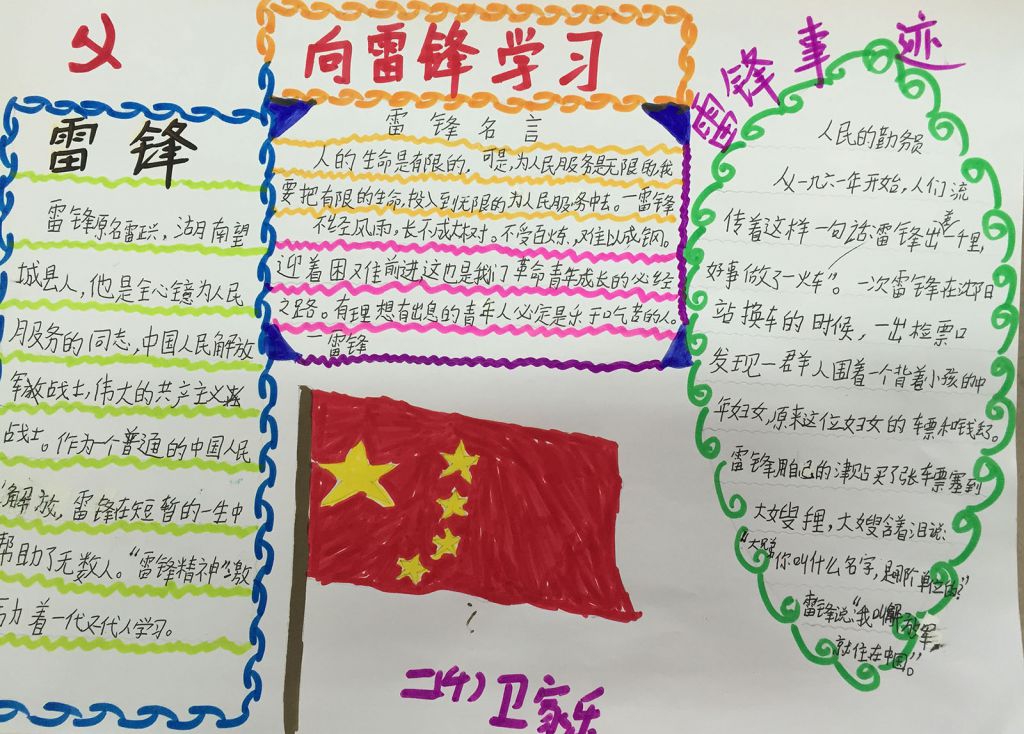 向雷锋学习
雷锋
雷锋原名雷正兴，湖南望
城县人，他是全心镜为人民
服务的同志，中国人民解放
军放战士，伟大的共产主义
战士。作为一个普通的中国人民
解放，雷锋在短暂的一生中
帮助了无数人。“雷锋精神”激
励着一代又代人学习。
雷锋名言
人的生命是有限的，可是，为人民服务是无限的，我
要把有限的生命，投入到无限的为人民服务中去。—雷锋
不经风雨，长不成大树。不受百炼，难以成钢。
迎着困难前进，这也是我们革命青年成长的必经
之路。有理想有出息的青年人必定是乐于吃苦的人。
—雷锋
雷锋事迹
人民的勤务员
从一九六一年开始，人们流
传着这样一句话：雷锋出差一千里，
好事做了一火车”。一次雷锋在沈阳
站换车的时候，一出检票口
发现一群人围着一个背着小孩的中
年妇女，原来这位妇女的车票和钱丢了。
雷锋用自己的津贴买了张车票塞到
大嫂狸，大嫂含着泪说：
“大兄弟你叫什么名字，是哪个单位的？”
雷锋说“我叫解放军，
就住在中国”。
二(4)卫家乐